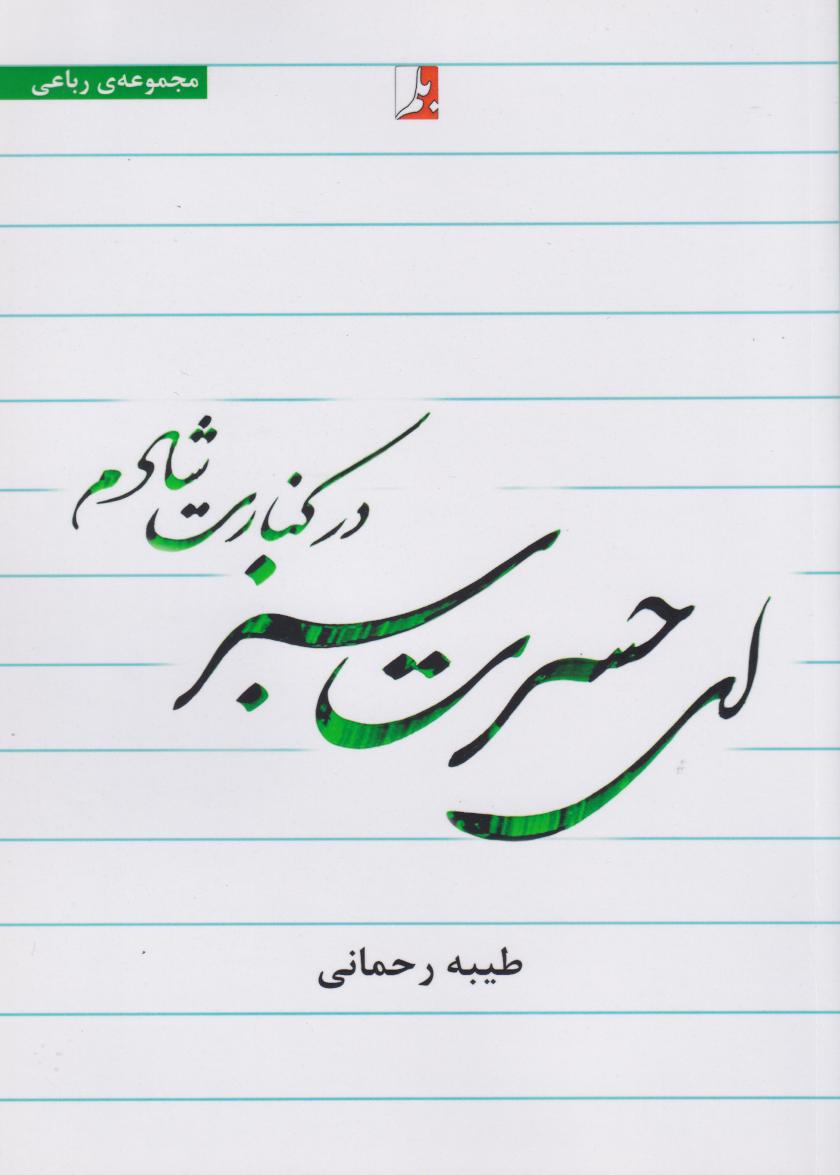 مجموعه‌ی رباعی
ای حسرت سبز
در کنارت شادم
طیبه رحمانی